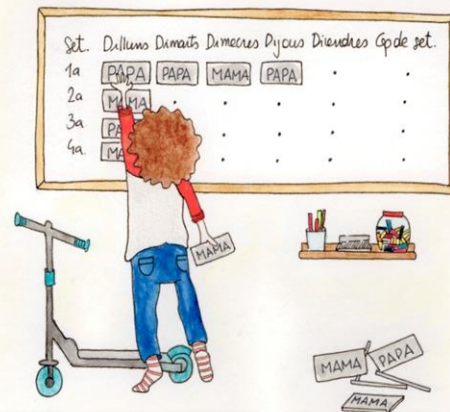 Set. Dilluns Dimarts Dimecres Dijous Divendres Cap de set.
1a PAPA PAPA MAMA PAPA
2a MAMA
3a
4a
MAMA
MAMA PAPA
MAMA